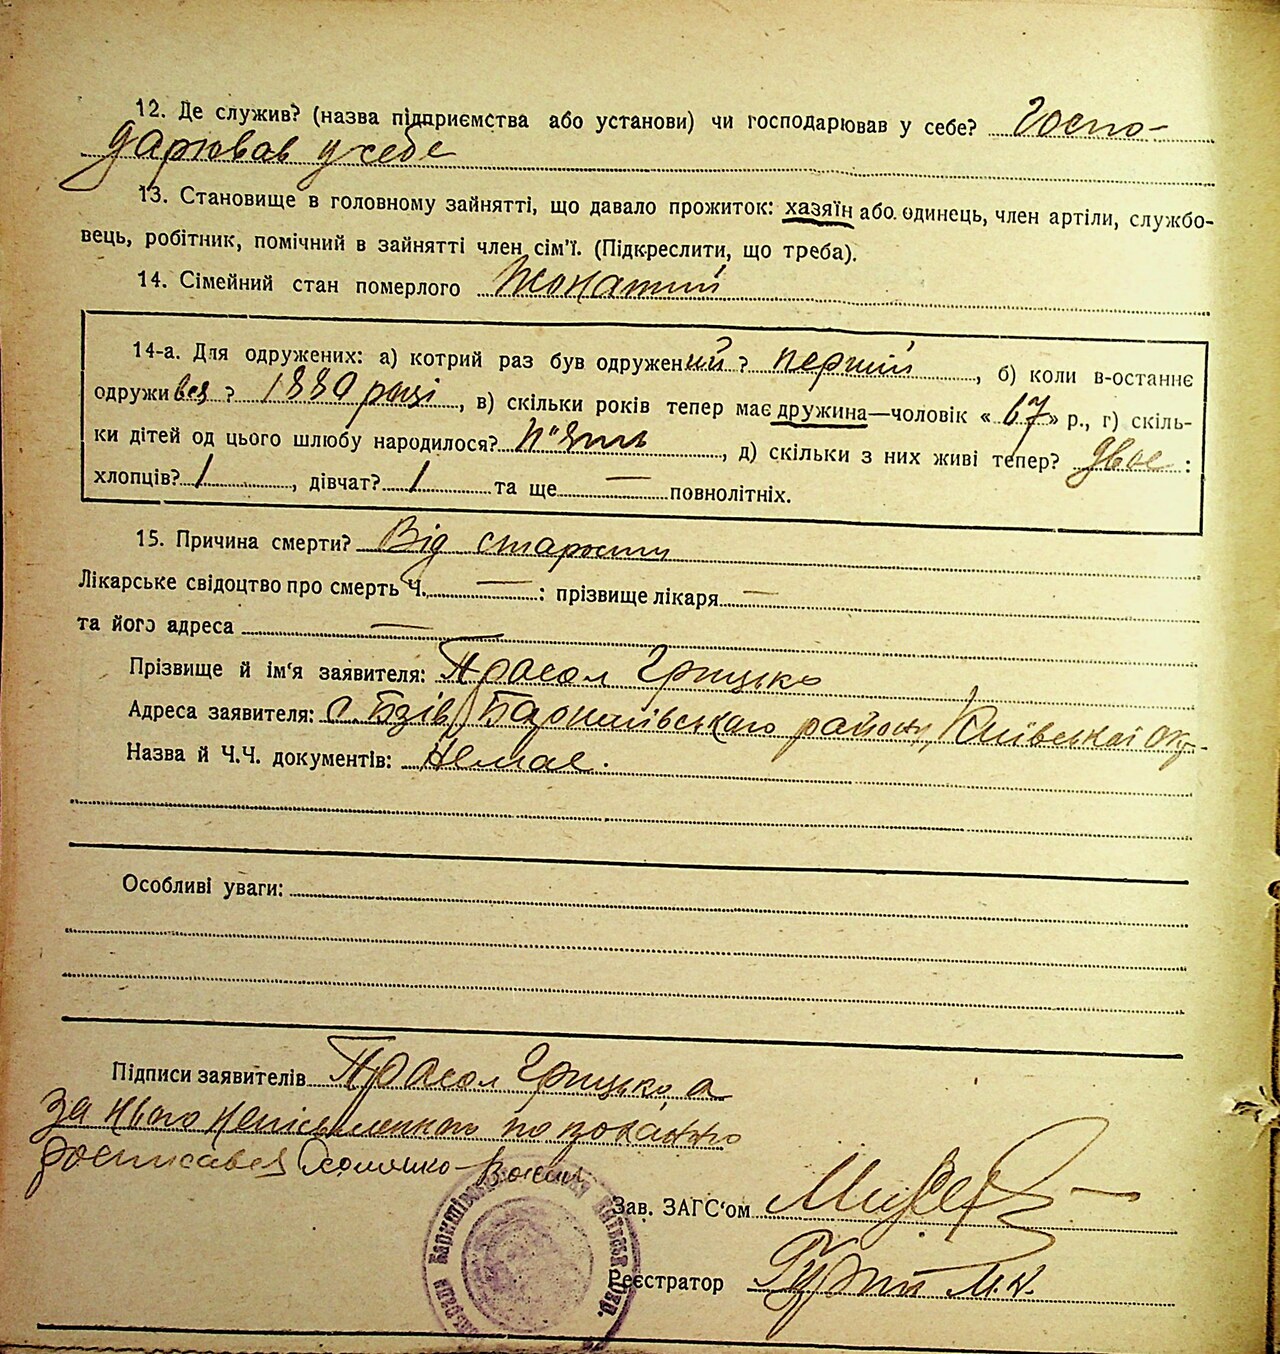 12. Де служив? (назва підприємства або установи) чи господарював у себе? Госпо-
дарював у себе
13. Становище в головному зайнятті, що давало прожиток: хазяїн або одинець, член артіли, службо-
вець, робітник, помічний в зайнятті член сім'ї. (Підкреслити, що треба).
14. Сімейний стан померлого Жонатий
14-а. Для одружених: а) котрий раз був одружений? перший, б) коли в-останнє
одруживсь? 1880 році, в) скільки років тепер має дружина—чоловік «67» р., г) скіль-
ки дітей од цього шлюбу народилося? п'ять, д) скільки з них живі тепер? двоє:
хлопців? 1, дівчат? 1 та ще — повнолітніх.
15. Причина смерти? Від старости
Лікарське свідоцтво про смерть Ч. —: прізвище лікаря —
та його адреса —
Прізвище й ім'я заявителя: Прасол Грицько
Адреса заявителя: с. Бзів Баришівського району, Київської окр.
Назва й Ч.Ч. документів: Немає.
Особливі уваги:
Підписи заявителів Прасол Грицько а
за нього неписьменного по проханню
росписався
Зав. ЗАГС'ом
Реєстратор